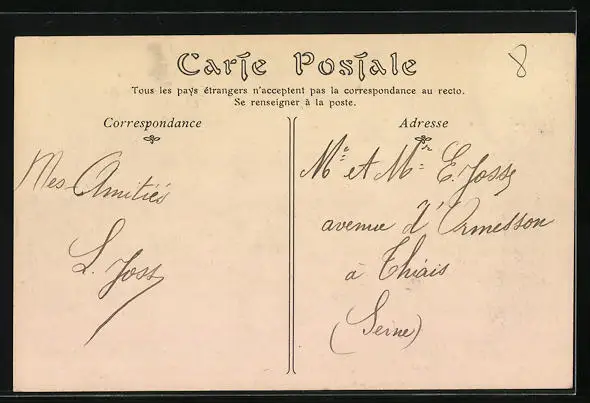 Carte Postale
8
Tous les pays étrangers n'acceptent pas la correspondance au recto.
Se renseigner à la poste.
Correspondance
Adresse
Mes Amitiés
L. Joss
Me et Mr E. Joss
avenue d'Ormesson
à Thiais
(Seine)